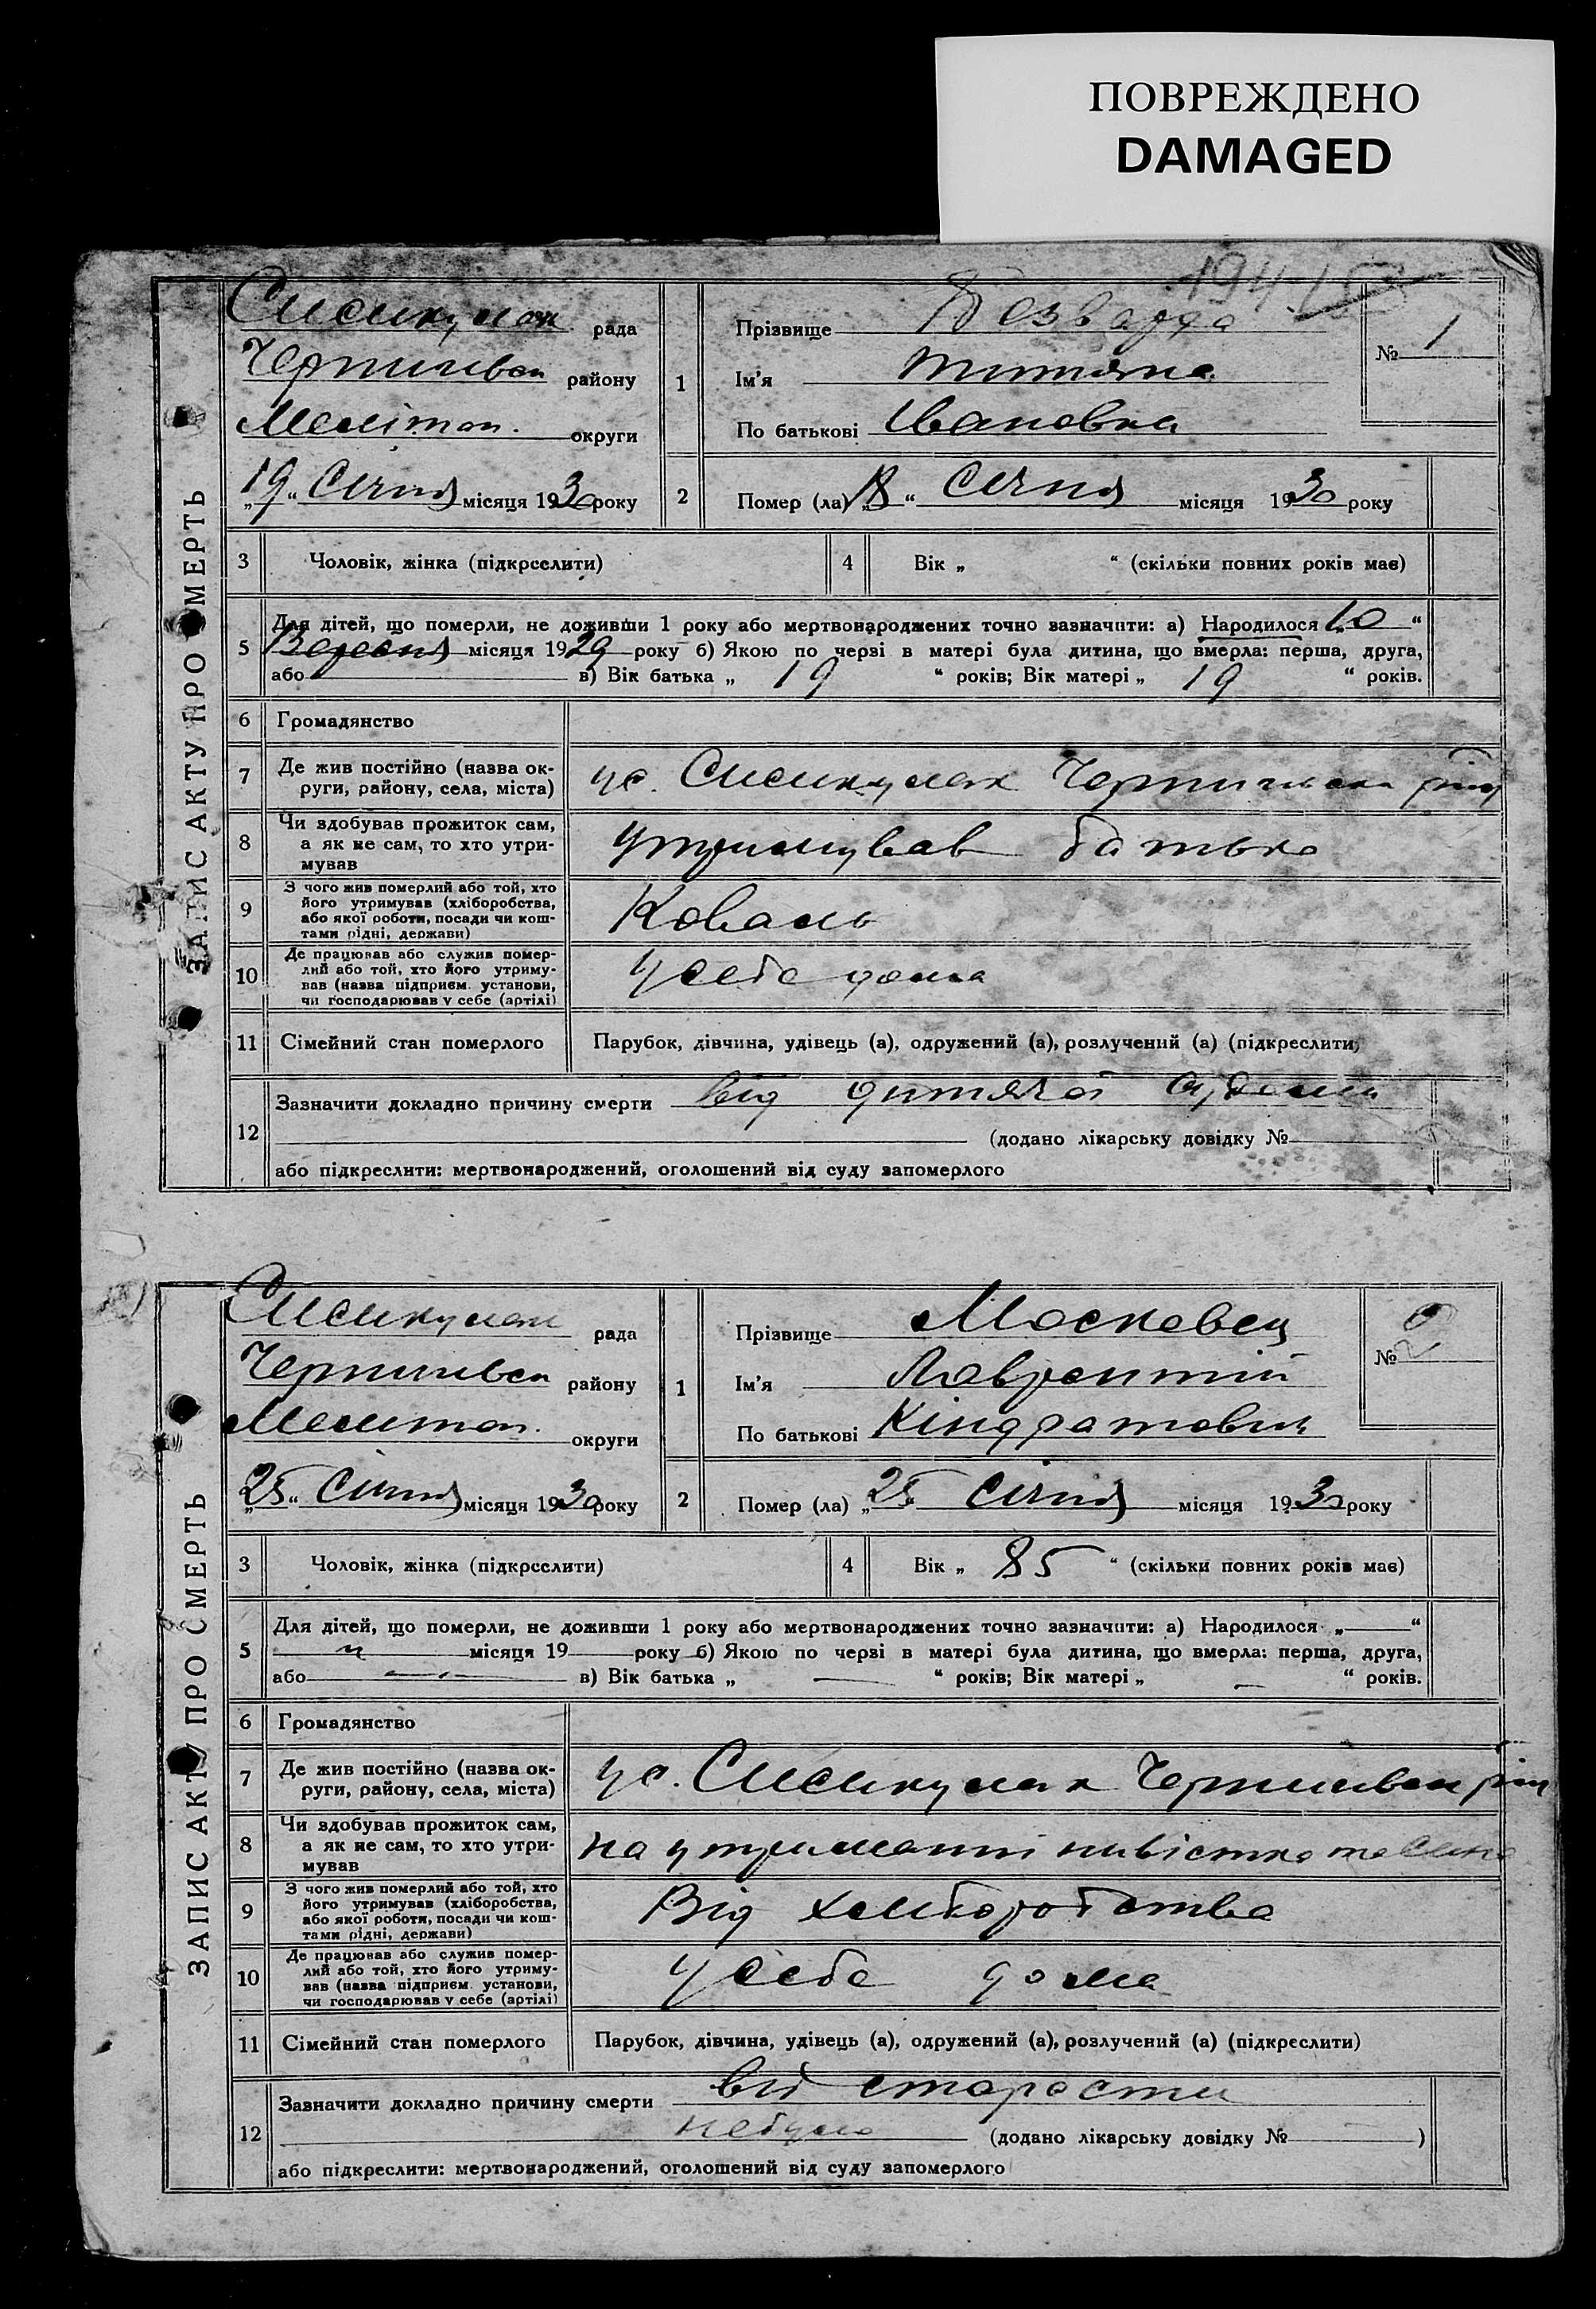 ПОВРЕЖДЕНО
DAMAGED
ЗАПИС АКТУ ПРО СМЕРТЬ
рада
району
Мелітоп. округи
„19“ Січня місяця 1930 року
1
Прізвище Безварда
Ім’я Титяна
По батькові Івановна
№ 1
2
Помер (ла) „18“ Січня місяця 1930 року
3 Чоловік, жінка (підкреслити)
4 Вік „ “ (скільки повних років має)
5
Для дітей, що померли, не доживши 1 року або мертвонароджених точно зазначити: а) Народилося „10“
Вересня місяця 1929 року б) Якою по черзі в матері була дитина, що вмерла: перша, друга,
або в) Вік батька „ 19 “ років; Вік матері „ 19 “ років.
6 Громадянство
7 Де жив постійно (назва ок-
руги, району, села, міста)
у с.
8 Чи здобував прожиток сам,
а як не сам, то хто утри-
мував
утримував батько
9 З чого жив померлий або той, хто
його утримував (хліборобства,
або якої роботи, посади чи кош-
тами рідні, держави)
Коваль
10 Де працював або служив помер-
лий або той, хто його утриму-
вав (назва підприєм. установи,
чи господарював у себе (артілі)
У себе дома
11 Сімейний стан померлого
Парубок, дівчина, удівець (а), одружений (а), розлучений (а) (підкреслити)
12
Зазначити докладно причину смерти від дитячої
(додано лікарську довідку №
або підкреслити: мертвонароджений, оголошений від суду запомерлого
ЗАПИС АКТУ ПРО СМЕРТЬ
рада
району
Мелитоп. округи
„25“ Січня місяця 1930 року
1
Прізвище Московец
Ім’я Лаврентій
По батькові Кіндратович
№ 2
2
Помер (ла) „25 Січня місяця 1930 року
3 Чоловік, жінка (підкреслити)
4 Вік „ 85 “ (скільки повних років має)
5
Для дітей, що померли, не доживши 1 року або мертвонароджених точно зазначити: а) Народилося „ “
місяця 19 року б) Якою по черзі в матері була дитина, що вмерла: перша, друга,
або в) Вік батька „ — “ років; Вік матері „ — “ років.
6 Громадянство
7 Де жив постійно (назва ок-
руги, району, села, міста)
у с.
8 Чи здобував прожиток сам,
а як не сам, то хто утри-
мував
на утриманні нивістка та сина
9 З чого жив померлий або той, хто
його утримував (хліборобства,
або якої роботи, посади чи кош-
тами рідні, держави)
Від хліборобства
10 Де працював або служив помер-
лий або той, хто його утриму-
вав (назва підприєм. установи,
чи господарював у себе (артілі)
У себе дома
11 Сімейний стан померлого
Парубок, дівчина, удівець (а), одружений (а), розлучений (а) (підкреслити)
12
Зазначити докладно причину смерти від старости
небуло (додано лікарську довідку № )
або підкреслити: мертвонароджений, оголошений від суду запомерлого